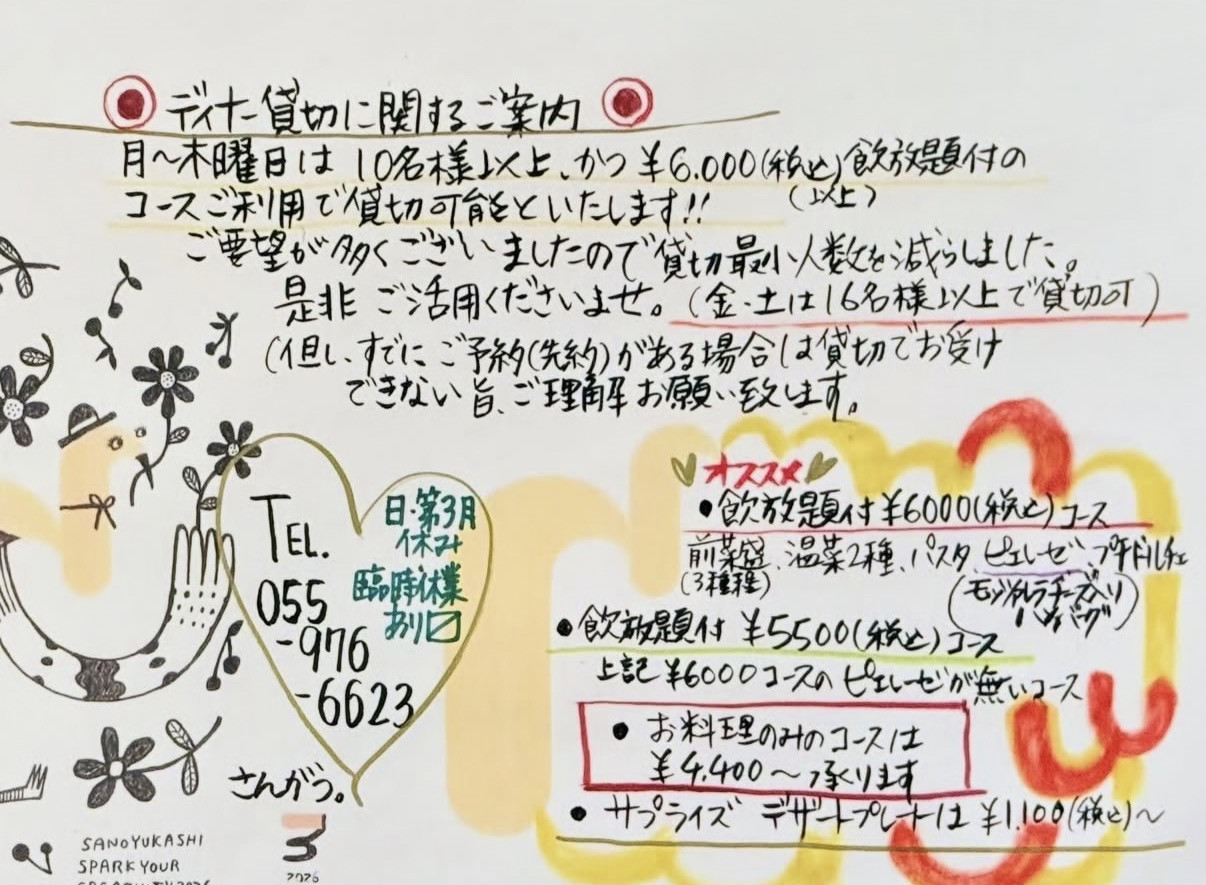 ディナー貸切に関するご案内
月〜木曜日は10名様以上、かつ¥6.000(税込)飲放題付の
(以上)
コースご利用で貸切可能といたします!!
ご要望が多くございましたので貸切最小人数を減らしました。
是非ご活用くださいませ。(金・土は16名様以上で貸切可)
(但し、すでにご予約(先約)がある場合は貸切でお受け
できない旨、ご理解お願い致します。
TEL.
055
-976
-6623
日・第3月
休み
臨時休業
あり☑
さんがつ。
オススメ
●飲放題付¥6000(税込)コース
前菜盛、温菜2種、パスタ、ピエレーゼ、プチドルチェ
(3種種)
(モッツァレラチーズ入り
ハンバーグ)
●飲放題付 ¥5500(税込)コース
上記¥6000コースのピエレーゼが無いコース
●お料理のみのコースは
¥4.400〜承ります
●サプライズ デザートプレートは¥1.100(税込)〜
SANOYUKASHI
SPARK YOUR
3
2026